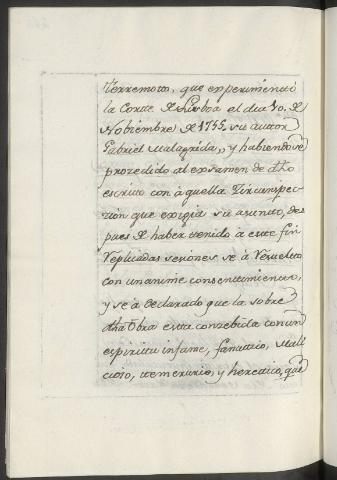 Terremoto, que experimentó
la Corte de Lisboa el dia 1.o de
Nobiembre de 1755. su autor
Gabriel Malagrida, y habiendose
prozedido al exsamen de dho
escrito con à quella Zircunspec
zion que exigia su asunto, des
pues de haber tenido à este fin
Replicadas sesiones se à Resuelto
con unanime consentimiento,
y se à declarado que la sobre
dha Obra esta conzebida con un
espiritu infame, fanatico, Mali
cioso, temerario, y heretico, que